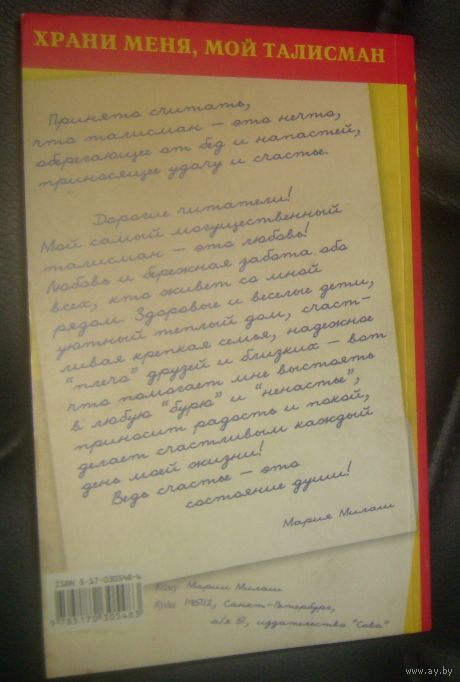 ХРАНИ МЕНЯ, МОЙ ТАЛИСМАН
Принято считать,
что талисман — это нечто,
оберегающее от бед и напастей,
приносящее удачу и счастье.
Дорогие читатели!
Мой самый могущественный
талисман — это любовь!
Любовь и бережная забота обо
всех, кто живет со мной
рядом. Здоровые и веселые дети,
уютный теплый дом, счаст-
ливая крепкая семья, надежное
"плечо" друзей и близких — вот
что помогает мне выстоять
в любую "бурю" и "ненастье",
приносит радость и покой,
делает счастливым каждый
день моей жизни!
Ведь счастье — это
состояние души!
Мария Милаш
ISBN 5-17-030548-6
9 785170 305483
Кому Марии Милаш
Куда Санкт-Петербург,
а/я 51, издательство "Сова"
www.ay.by